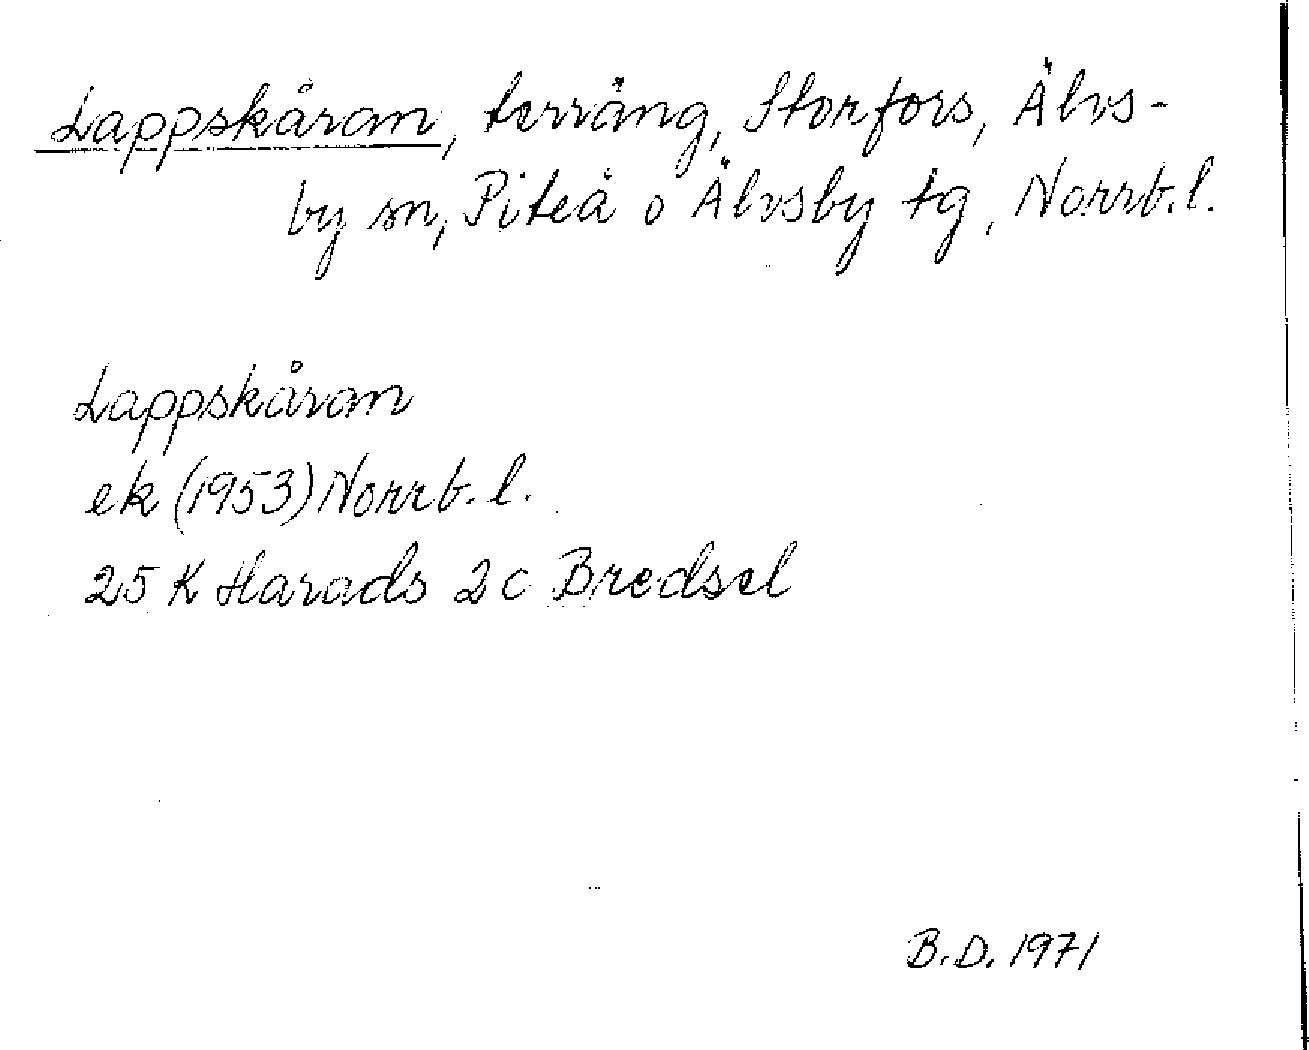 Lappskåran, terräng, Storfors, Älvs-
by sn, Piteå o Älvsby tg, Norrb. l.
Lappskåran
ek (1953) Norrb. l.
25 K Harads 2 c Bredsel
B. D. 1971